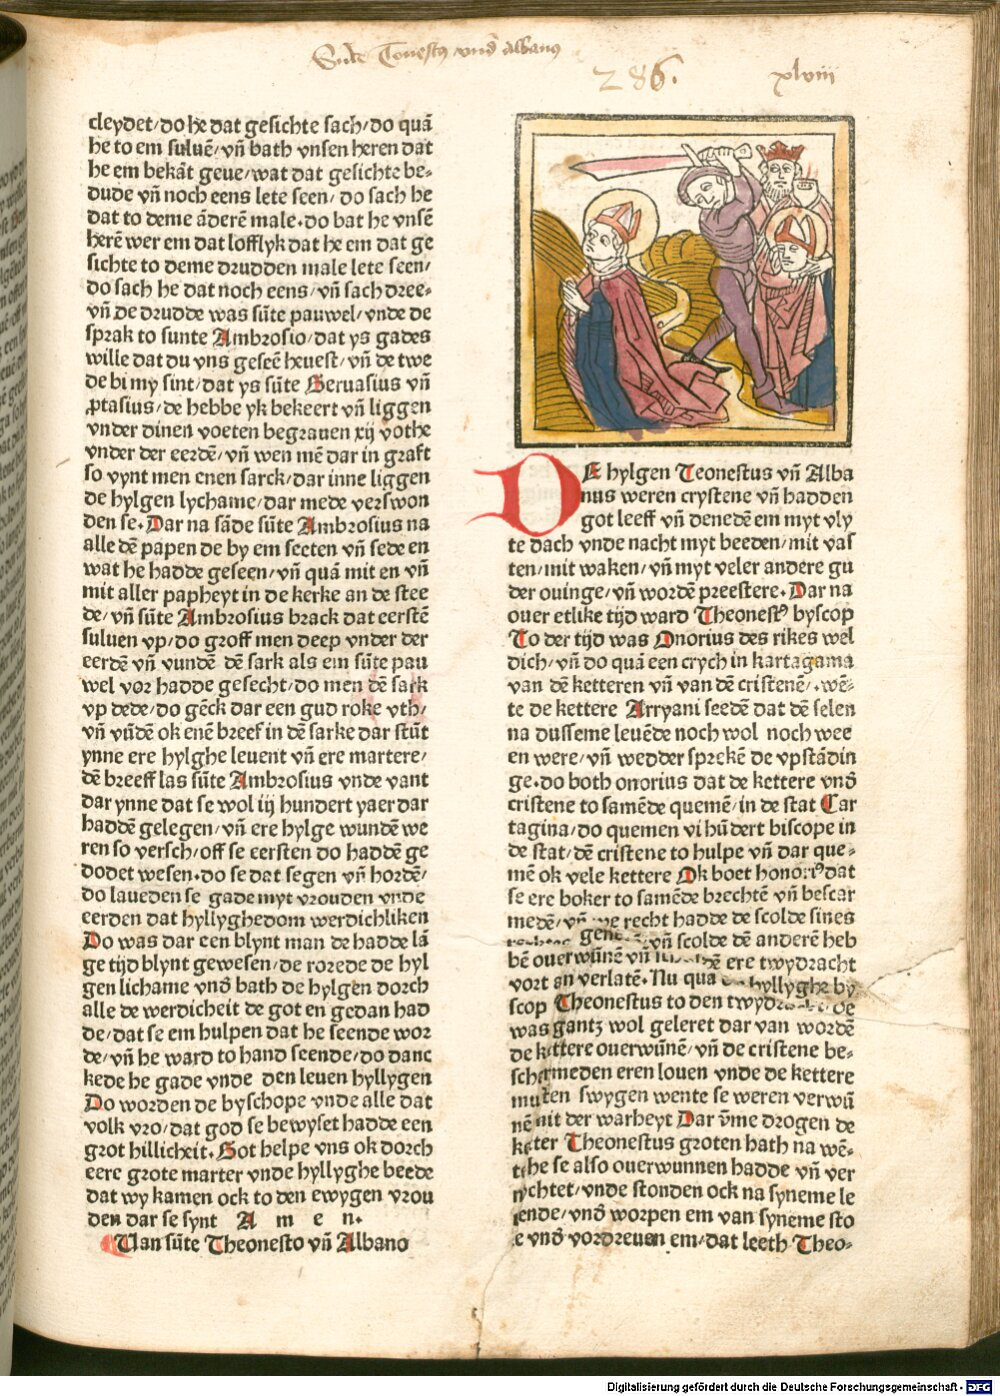 Sunte Tonestus vnd Albanus
286.
xlviii
cleydet/do he dat gesichte sach/do quā
he to em suluē/vn̄ bath vnsen heren dat
he em bekāt geue/wat dat gesichte be-
dude vn̄ noch eens lete seen/do sach he
dat to deme āderē male.do bat he vnsē
herē wer em dat lofflyk dat he em dat ge
sichte to deme drudden male lete seen/
do sach he dat noch eens/vn̄ sach dree-
vn̄ de drudde was sūte pauwel/vnde de
sprak to sunte Ambrosio/dat ys gades
wille dat du vns geseē heuest/vn̄ de twe
de bi my sint/dat ys sūte Geruasius vn̄
ꝓtasius/de hebbe yk bekeert vn̄ liggen
vnder dinen voeten begrauen xij vothe
vnder der eerdē/vn̄ wen mē dar in graft
so vynt men enen sarck/dar inne liggen
de hylgen lychame/dar mede verswon
den se.Dar na sāde sūte Ambrosius na
alle dē papen de by em seeten vn̄ sede en
wat he hadde geseen/vn̄ quā mit en vn̄
mit aller papheyt in de kerke an de stee
de/vn̄ sūte Ambrosius brack dat eerstē
suluen vp/do groff men deep vnder der
eerdē vn̄ vundē dē sark als em sūte pau
wel vor hadde gesecht/do men dē sark
vp dede/do gēck dar een gud roke vth/
vn̄ vūdē ok enē breef in dē sarke dar stūt
ynne ere hylghe leuent vn̄ ere martere/
dē breeff las sūte Ambrosius vnde vant
dar ynne dat se wol iij hundert yaer dar
haddē gelegen/vn̄ ere hylge wundē we
ren so versch/off se eersten do haddē ge
dodet wesen.do se dat segen vn̄ hordē/
do laueden se gade myt vrouden vnde
eerden dat hyllyghedom werdichliken
Do was dar een blynt man de hadde lā
ge tijd blynt gewesen/de rorede de hyl
gen lichame vnd bath de hylgen dorch
alle de werdicheit de got en gedan had
de/dat se em hulpen dat he seende wor
de/vn̄ he ward to hand seende/do danc
kede he gade vnde den leuen hyllygen
Do worden de byschope vnde alle dat
volk vro/dat god se bewyset hadde een
grot hillicheit.Got helpe vns ok dorch
eere grote marter vnde hyllyghe beede
dat wy kamen ock to den ewygen vrou
den dar se synt A m e n.
Van sūte Theonesto vn̄ Albano
DE hylgen Teonestus vn̄ Alba
nus weren crystene vn̄ hadden
got leeff vn̄ denedē em myt vly
te dach vnde nacht myt beeden/mit vas
ten/mit waken/vn̄ myt veler andere gu
der ouinge/vn̄ wordē preestere.Dar na
ouer etlike tijd ward Theonestꝰ byscop
To der tijd was Onorius des rikes wel
dich/vn̄ do quā een crych in kartagama
van dē ketteren vn̄ van dē cristenē/wē-
te de kettere Arryani seedē dat dē selen
na dusseme leuēde noch wol noch wee
en were/vn̄ wedder sprekē de vpstādin
ge.do both onorius dat de kettere vnd
cristene to samēde quemē/in de stat Car
tagina/do quemen vi hūdert biscope in
de stat/dē cristene to hulpe vn̄ dar que-
mē ok vele kettere Ok boet honoriꝰ dat
se ere boker to samēde brechtē vn̄ bescar
medē/vn̄ we recht hadde de scolde sines
vn̄ scolde dē anderē heb
bē ouerwūnē vn̄ ere twydracht
vort an verlatē.Nu qua hyllyghe by
scop Theonestus to den de
was gantz wol geleret dar van wordē
de kettere ouerwūnē/vn̄ de cristene be-
schermeden eren louen vnde de kettere
musten swygen wente se weren verwū
nē mit der warheyt Dar v̄me drogen de
ketter Theonestus groten hath na wē-
te he se also ouerwunnen hadde vn̄ ver
nychtet/vnde stonden ock na syneme le
uende/vnd worpen em van syneme sto
le vnd vordreuen em/dat leeth Theo-
Digitalisierung gefördert durch die Deutsche Forschungsgemeinschaft - DFG